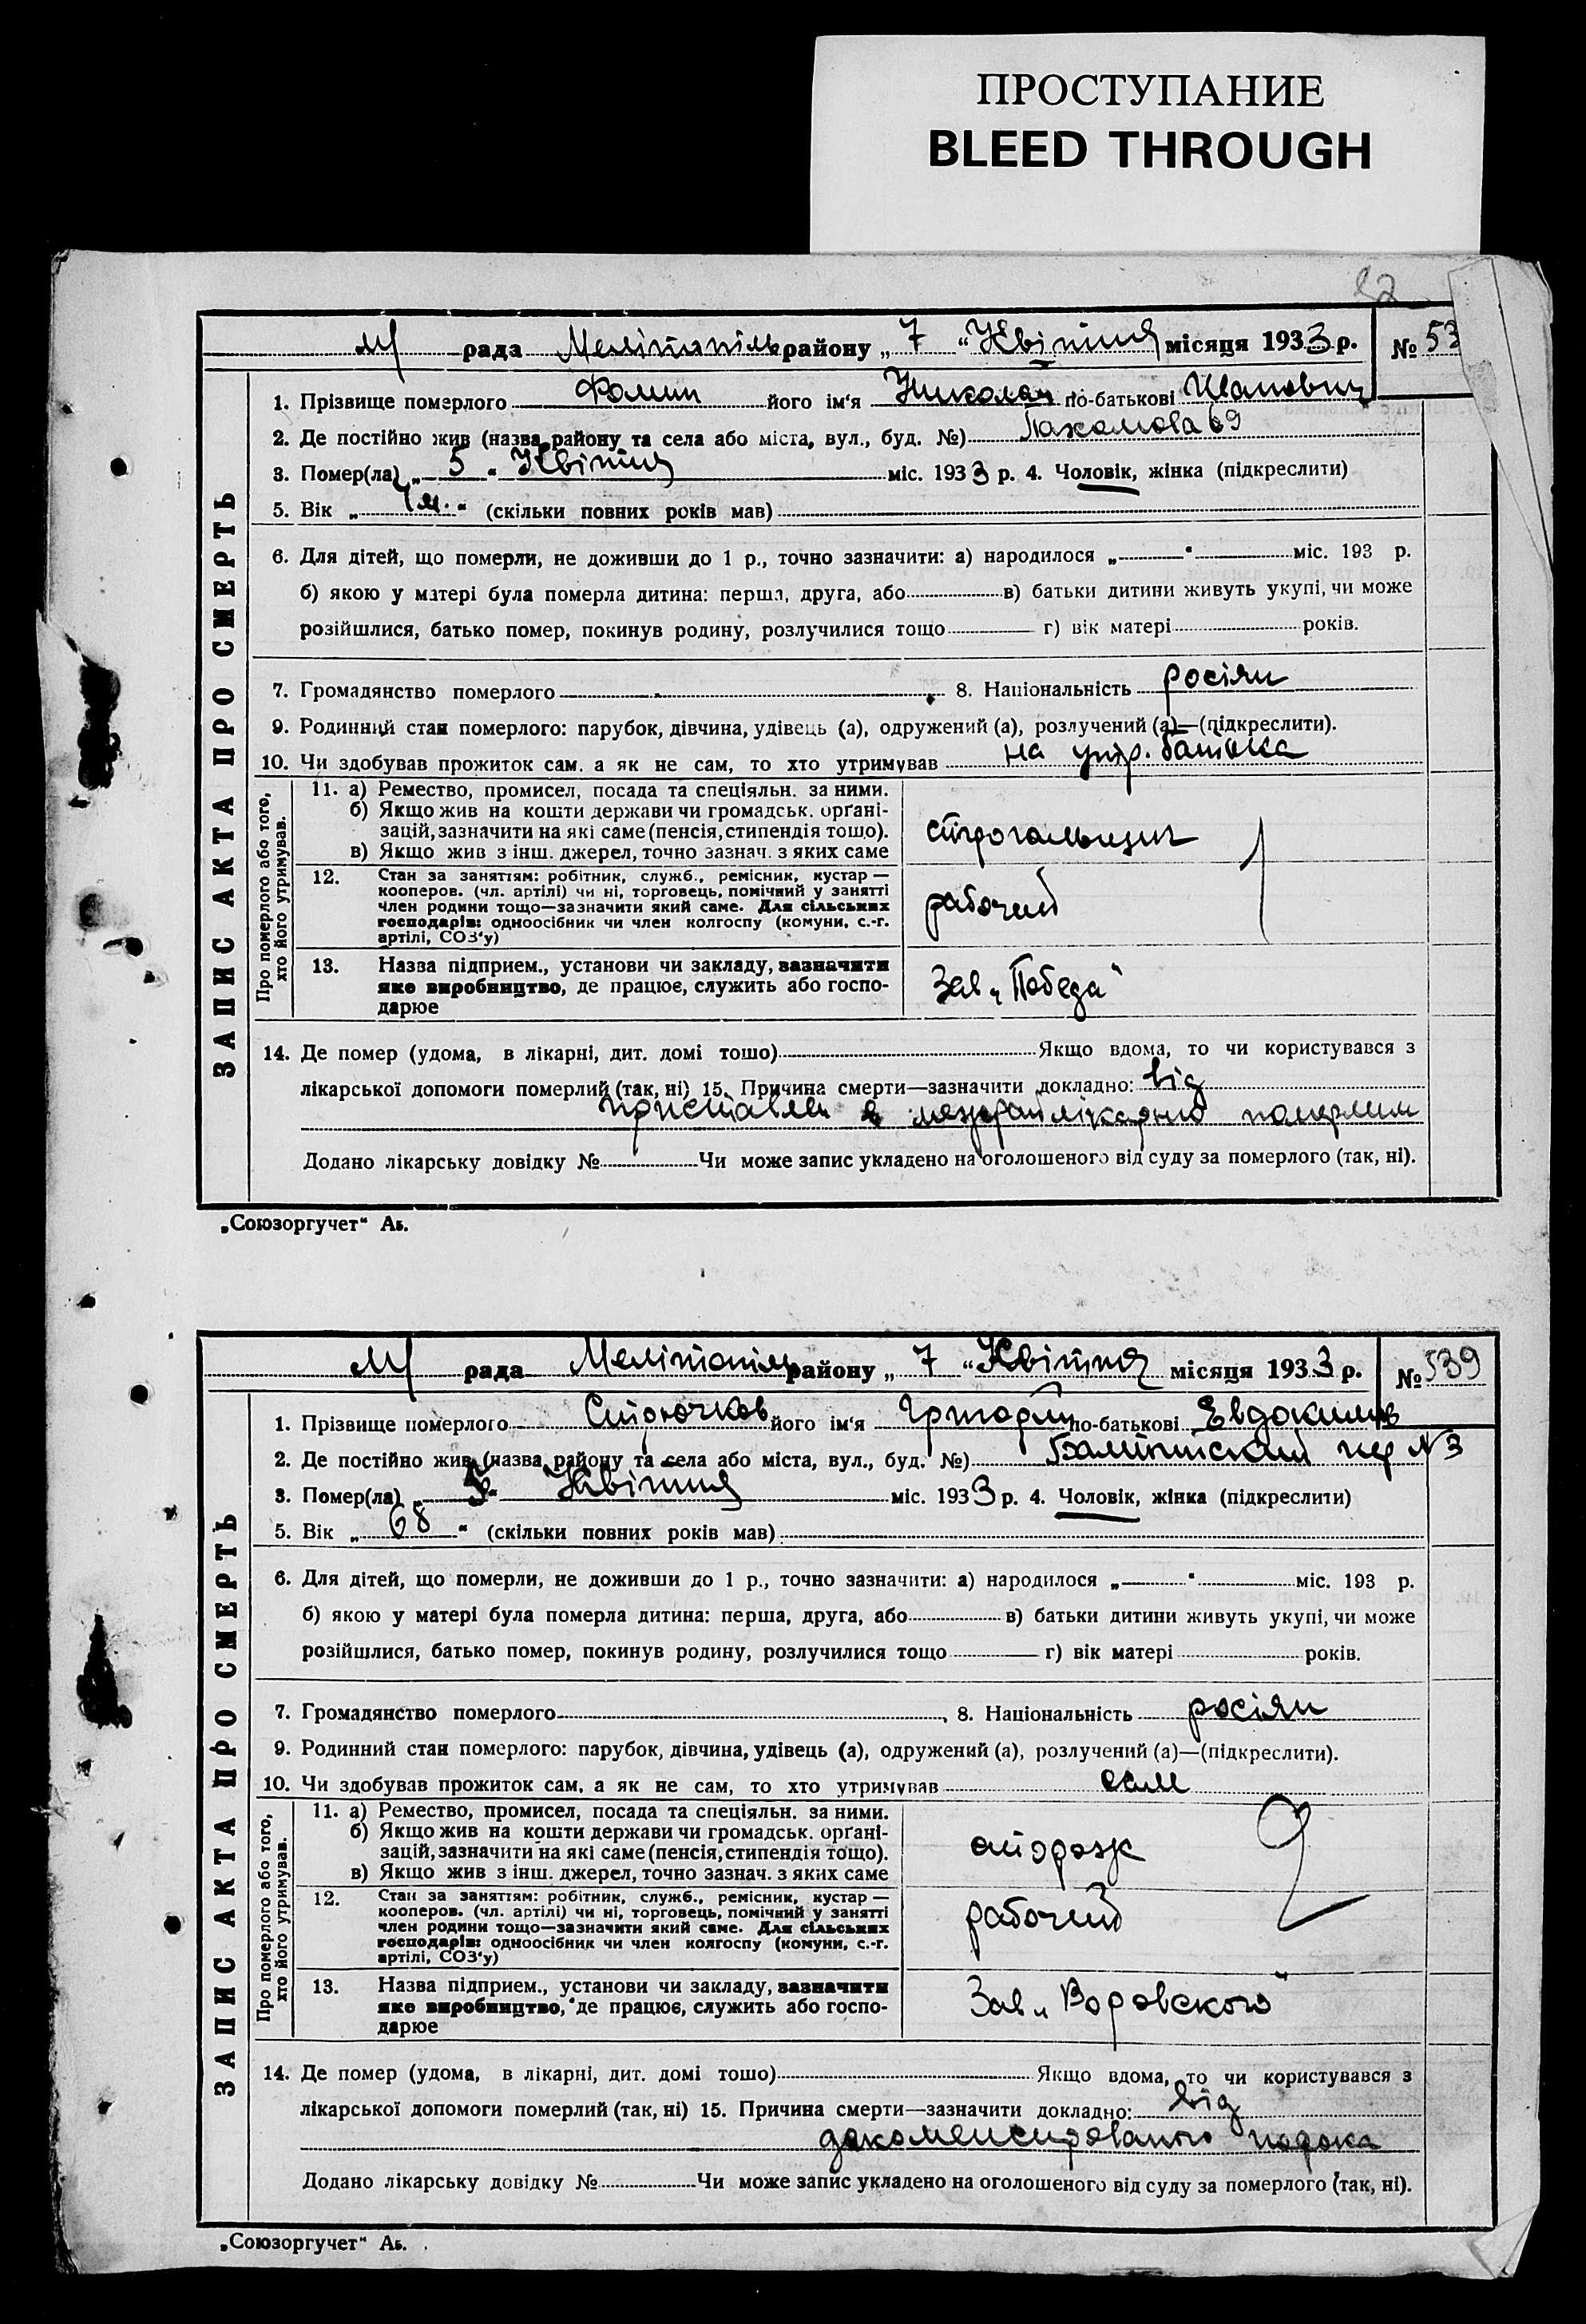 ПРОСТУПАНИЕ
BLEED THROUGH
82
М/ рада Мелітопіль району „ 7 “ Квітня місяця 1933 р. № 53
ЗАПИС АКТА ПРО СМЕРТЬ
1. Прізвище померлого Фомин його ім‘я Николай по-батькові Иванович
2. Де постійно жив (назва району та села або міста, вул., буд. №) Пахомова 69
3. Помер(ла) „ 5 “ Квітня міс. 1933 р. 4. Чоловік, жінка (підкреслити)
5. Вік „ “ (скільки повних років мав)
6. Для дітей, що померли, не доживши до 1 р., точно зазначити: а) народилося „ “ міс. 193 р.
б) якою у матері була померла дитина: перша, друга, або в) батьки дитини живуть укупі, чи може
розійшлися, батько помер, покинув родину, розлучилися тощо г) вік матері років.
7. Громадянство померлого 8. Національність росіян
9. Родинний стан померлого: парубок, дівчина, удівець (а), одружений (а), розлучений (а)—(підкреслити).
10. Чи здобував прожиток сам, а як не сам, то хто утримував на утр. батька
Про померлого або того, хто його утримував.
11. а) Ремество, промисел, посада та спеціяльн. за ними.
б) Якщо жив на кошти держави чи громадськ. орґані-
зацій, зазначити на які саме (пенсія, стипендія тощо).
в) Якщо жив з інш. джерел, точно зазнач. з яких саме
строгальщик
12. Стан за заняттям: робітник, служб., ремісник, кустар —
кооперов. (чл. артілі) чи ні, торговець, помічний у занятті
член родини тощо—зазначити який саме. Для сільських
господарів: одноосібник чи член колгоспу (комуни, с.-г.
артілі, СОЗ‘у)
рабочий
13. Назва підприєм., установи чи закладу, зазначити
яке виробництво, де працює, служить або госпо-
дарює
Зав „Победа“
14. Де помер (удома, в лікарні, дит. домі тощо) Якщо вдома, то чи користувався з
лікарської допомоги померлий (так, ні) 15. Причина смерти—зазначити докладно: від
приставлен в померлим
Додано лікарську довідку № Чи може запис укладено на оголошеного від суду за померлого (так, ні).
„Союзоргучет“ Аз.
М/ рада Мелітопіль району „ 7 “ Квітня місяця 1933 р. № 539
ЗАПИС АКТА ПРО СМЕРТЬ
1. Прізвище померлого Стрючков його ім‘я Григорий по-батькові Евдокимов
2. Де постійно жив (назва району та села або міста, вул., буд. №) Балтийский пер N 3
3. Помер(ла) „ “ Квітня міс. 1933 р. 4. Чоловік, жінка (підкреслити)
5. Вік „ 68 “ (скільки повних років мав)
6. Для дітей, що померли, не доживши до 1 р., точно зазначити: а) народилося „ “ міс. 193 р.
б) якою у матері була померла дитина: перша, друга, або в) батьки дитини живуть укупі, чи може
розійшлися, батько помер, покинув родину, розлучилися тощо г) вік матері років.
7. Громадянство померлого 8. Національність росіян
9. Родинний стан померлого: парубок, дівчина, удівець (а), одружений (а), розлучений (а)—(підкреслити).
10. Чи здобував прожиток сам, а як не сам, то хто утримував сам
Про померлого або того, хто його утримував.
11. а) Ремество, промисел, посада та спеціяльн. за ними.
б) Якщо жив на кошти держави чи громадськ. орґані-
зацій, зазначити на які саме (пенсія, стипендія тощо).
в) Якщо жив з інш. джерел, точно зазнач. з яких саме
сторож
2
12. Стан за заняттям: робітник, служб., ремісник, кустар —
кооперов. (чл. артілі) чи ні, торговець, помічний у занятті
член родини тощо—зазначити який саме. Для сільських
господарів: одноосібник чи член колгоспу (комуни, с.-г.
артілі, СОЗ‘у)
рабочий
13. Назва підприєм., установи чи закладу, зазначити
яке виробництво, де працює, служить або госпо-
дарює
Зав „Воровского“
14. Де помер (удома, в лікарні, дит. домі тощо) Якщо вдома, то чи користувався з
лікарської допомоги померлий (так, ні) 15. Причина смерти—зазначити докладно: від
декоменсированого порока
Додано лікарську довідку № Чи може запис укладено на оголошеного від суду за померлого (так, ні).
„Союзоргучет“ Аз.